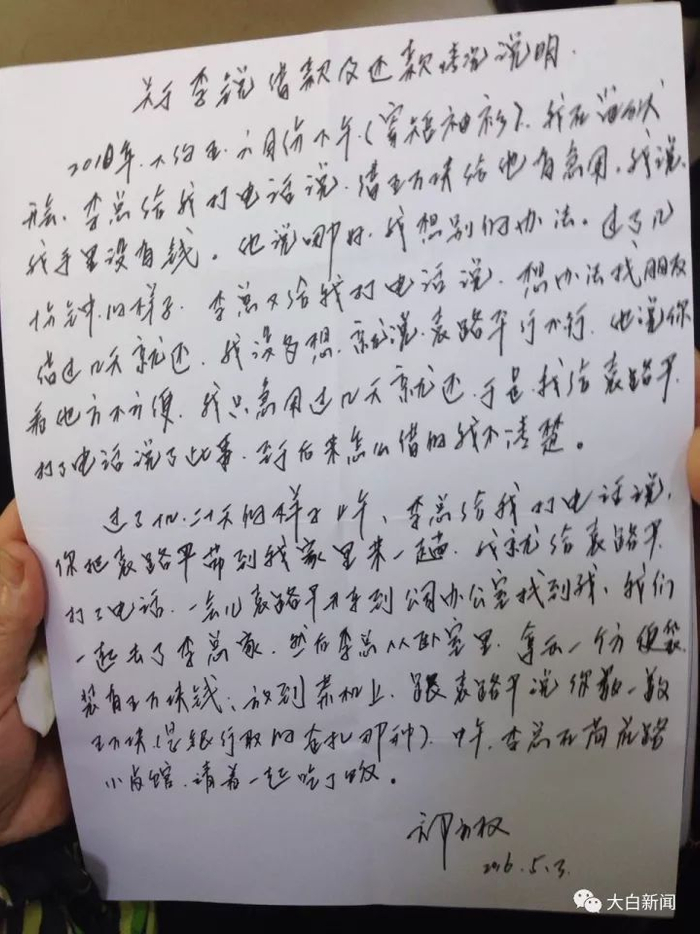 关于李锐借款及还款情况说明.
2010年.大约五.六月份下午(穿短袖衫).我在
开会.李总给我打电话说.借五万块给他有急用.我说.
我手里没有钱。他说那好.我想别的办法。过了几
十分钟的样子.李总又给我打电话说.想办法找朋友
借过几天就还.我没多想.就说.袁路平行不行.他说你
看他方不方便.我只急用过几天就还.于是.我给袁路平.
打了电话说了此事.至于后来怎么借的我不清楚。
过了一.二十天的样子中午、李总给我打电话说.
你把袁路平带到我家里来一趟.我就给袁路平.
打了电话.一会儿袁路平开车到公司办公室找到我、我们
一起去了李总家.然后李总从卧室里.拿出一个方便袋.
装有五万块钱、放到茶几上.跟袁路平说你数一数
五万块(是银行取的查扎那种).中午.李总在荷花路
小卤馆.请着一起吃了饭。
2016.5.3.
大白新闻